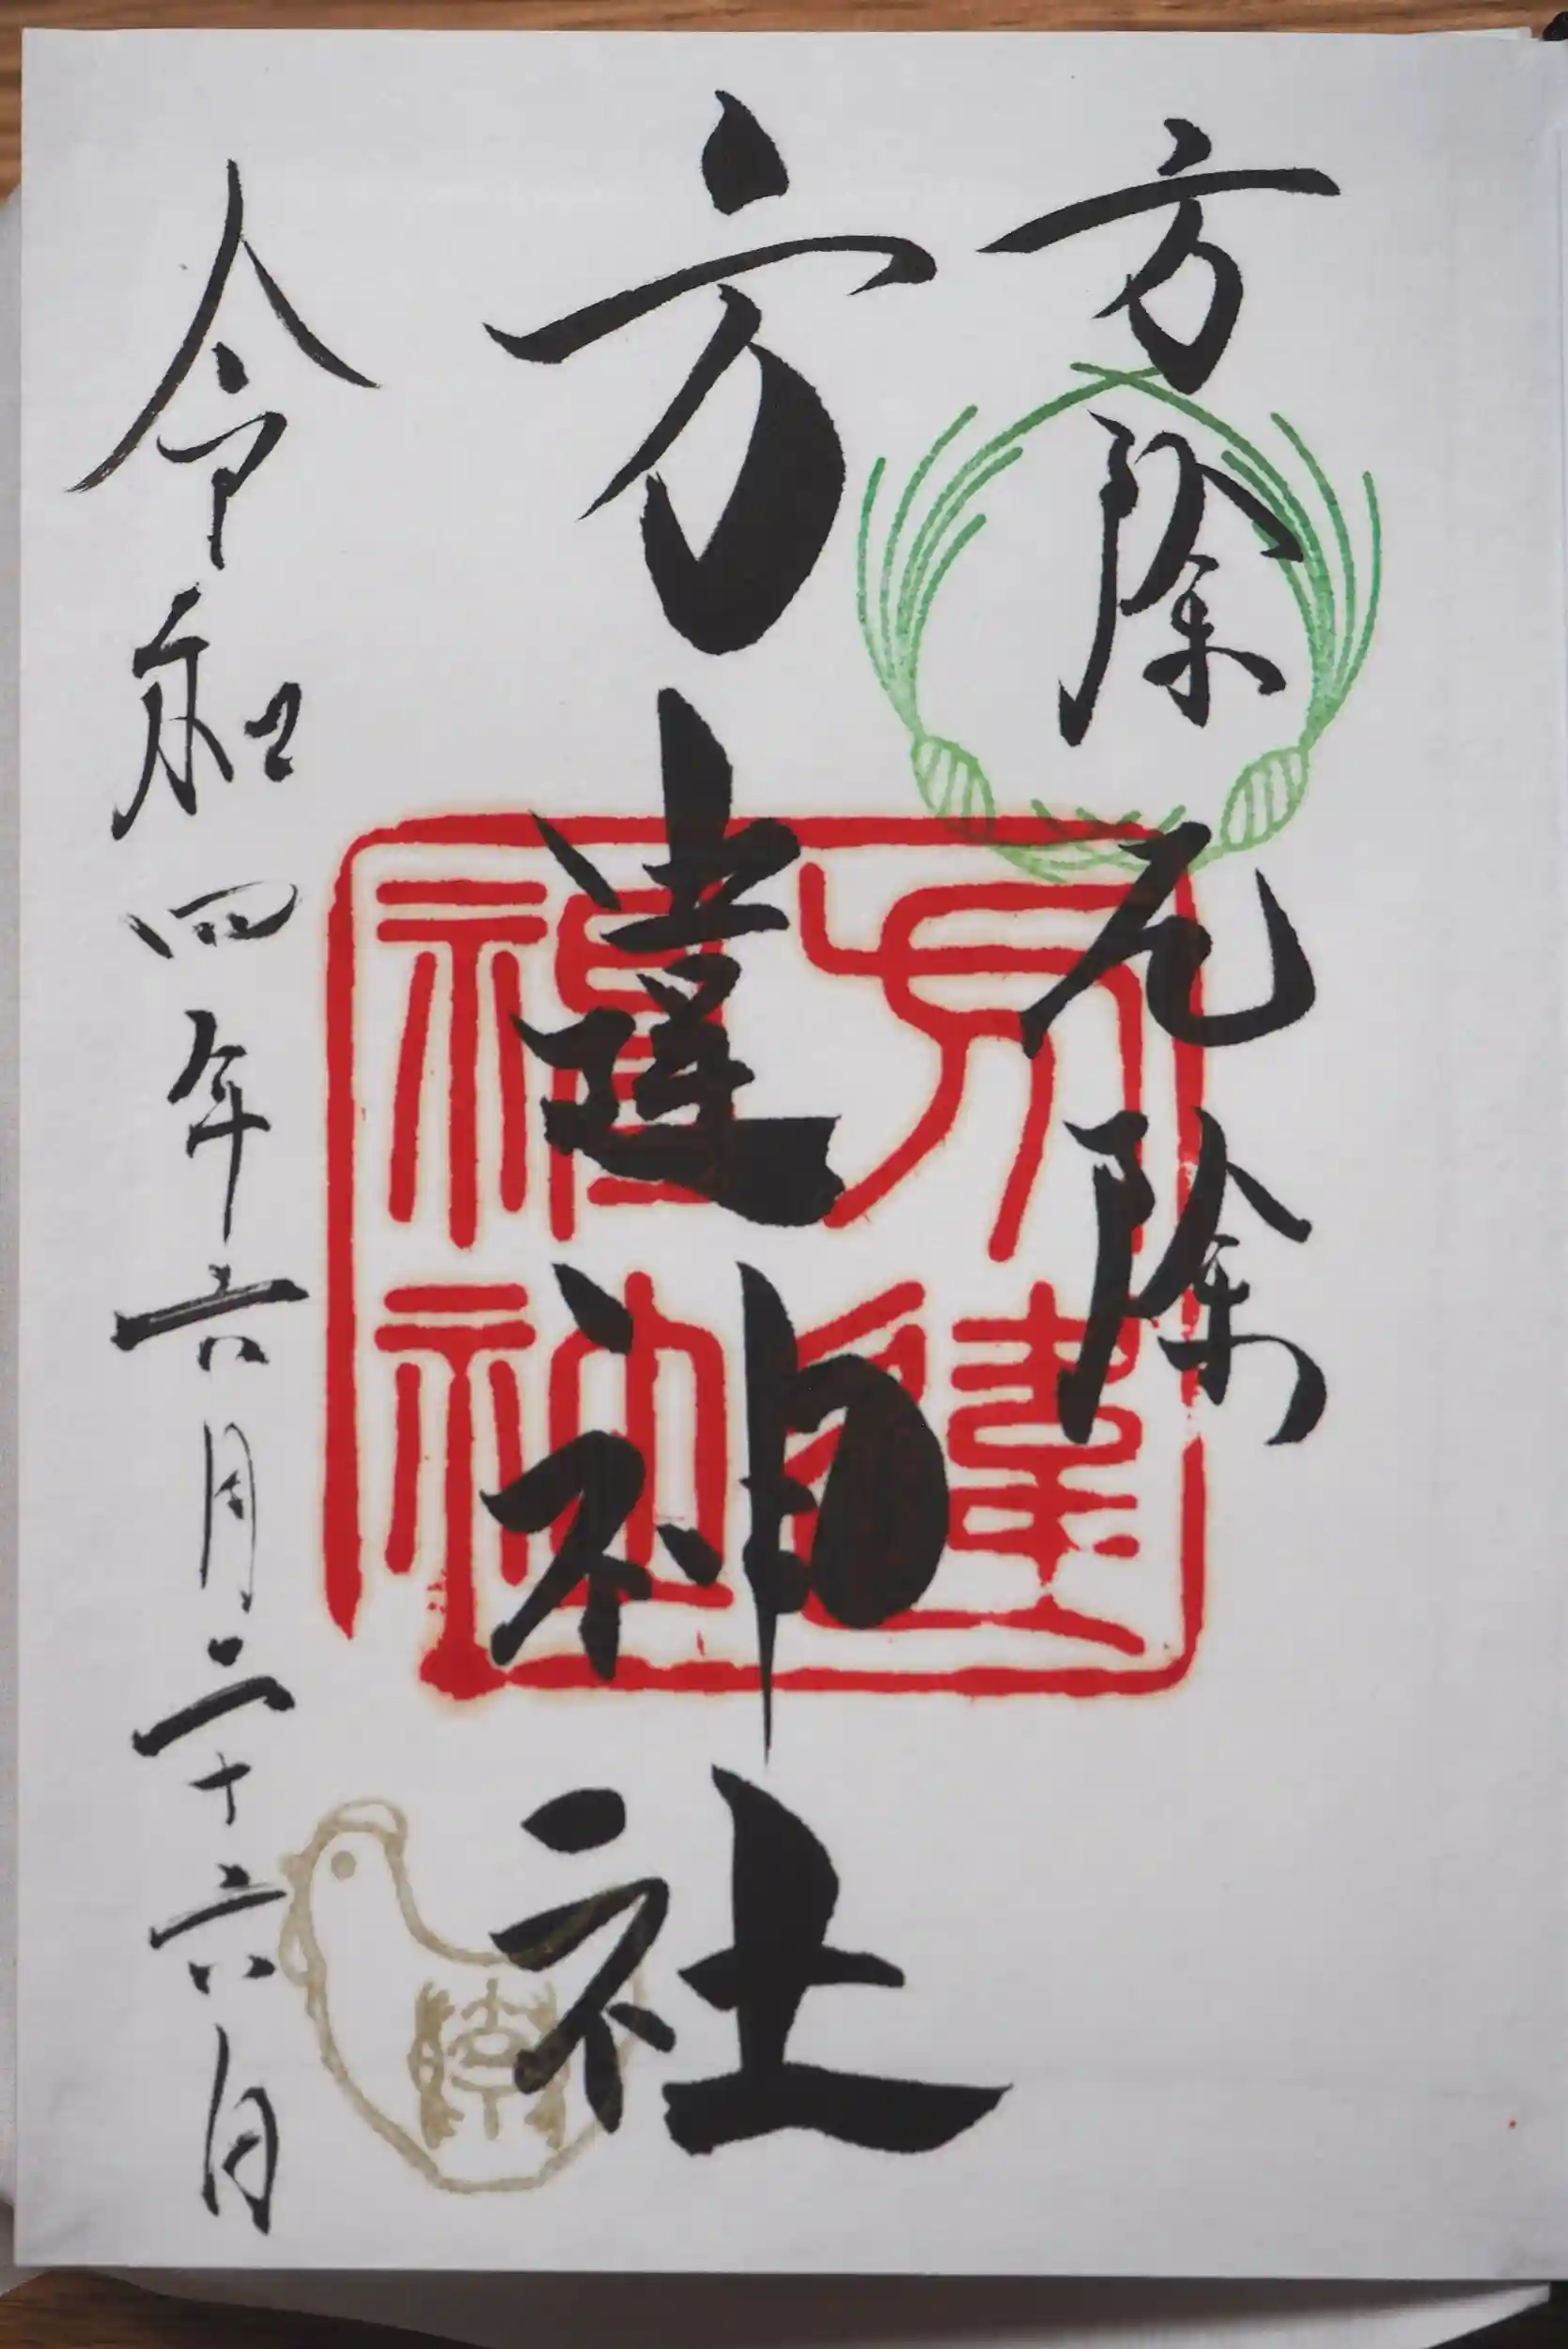 方除厄除
方違神社
令和四年六月二十六日